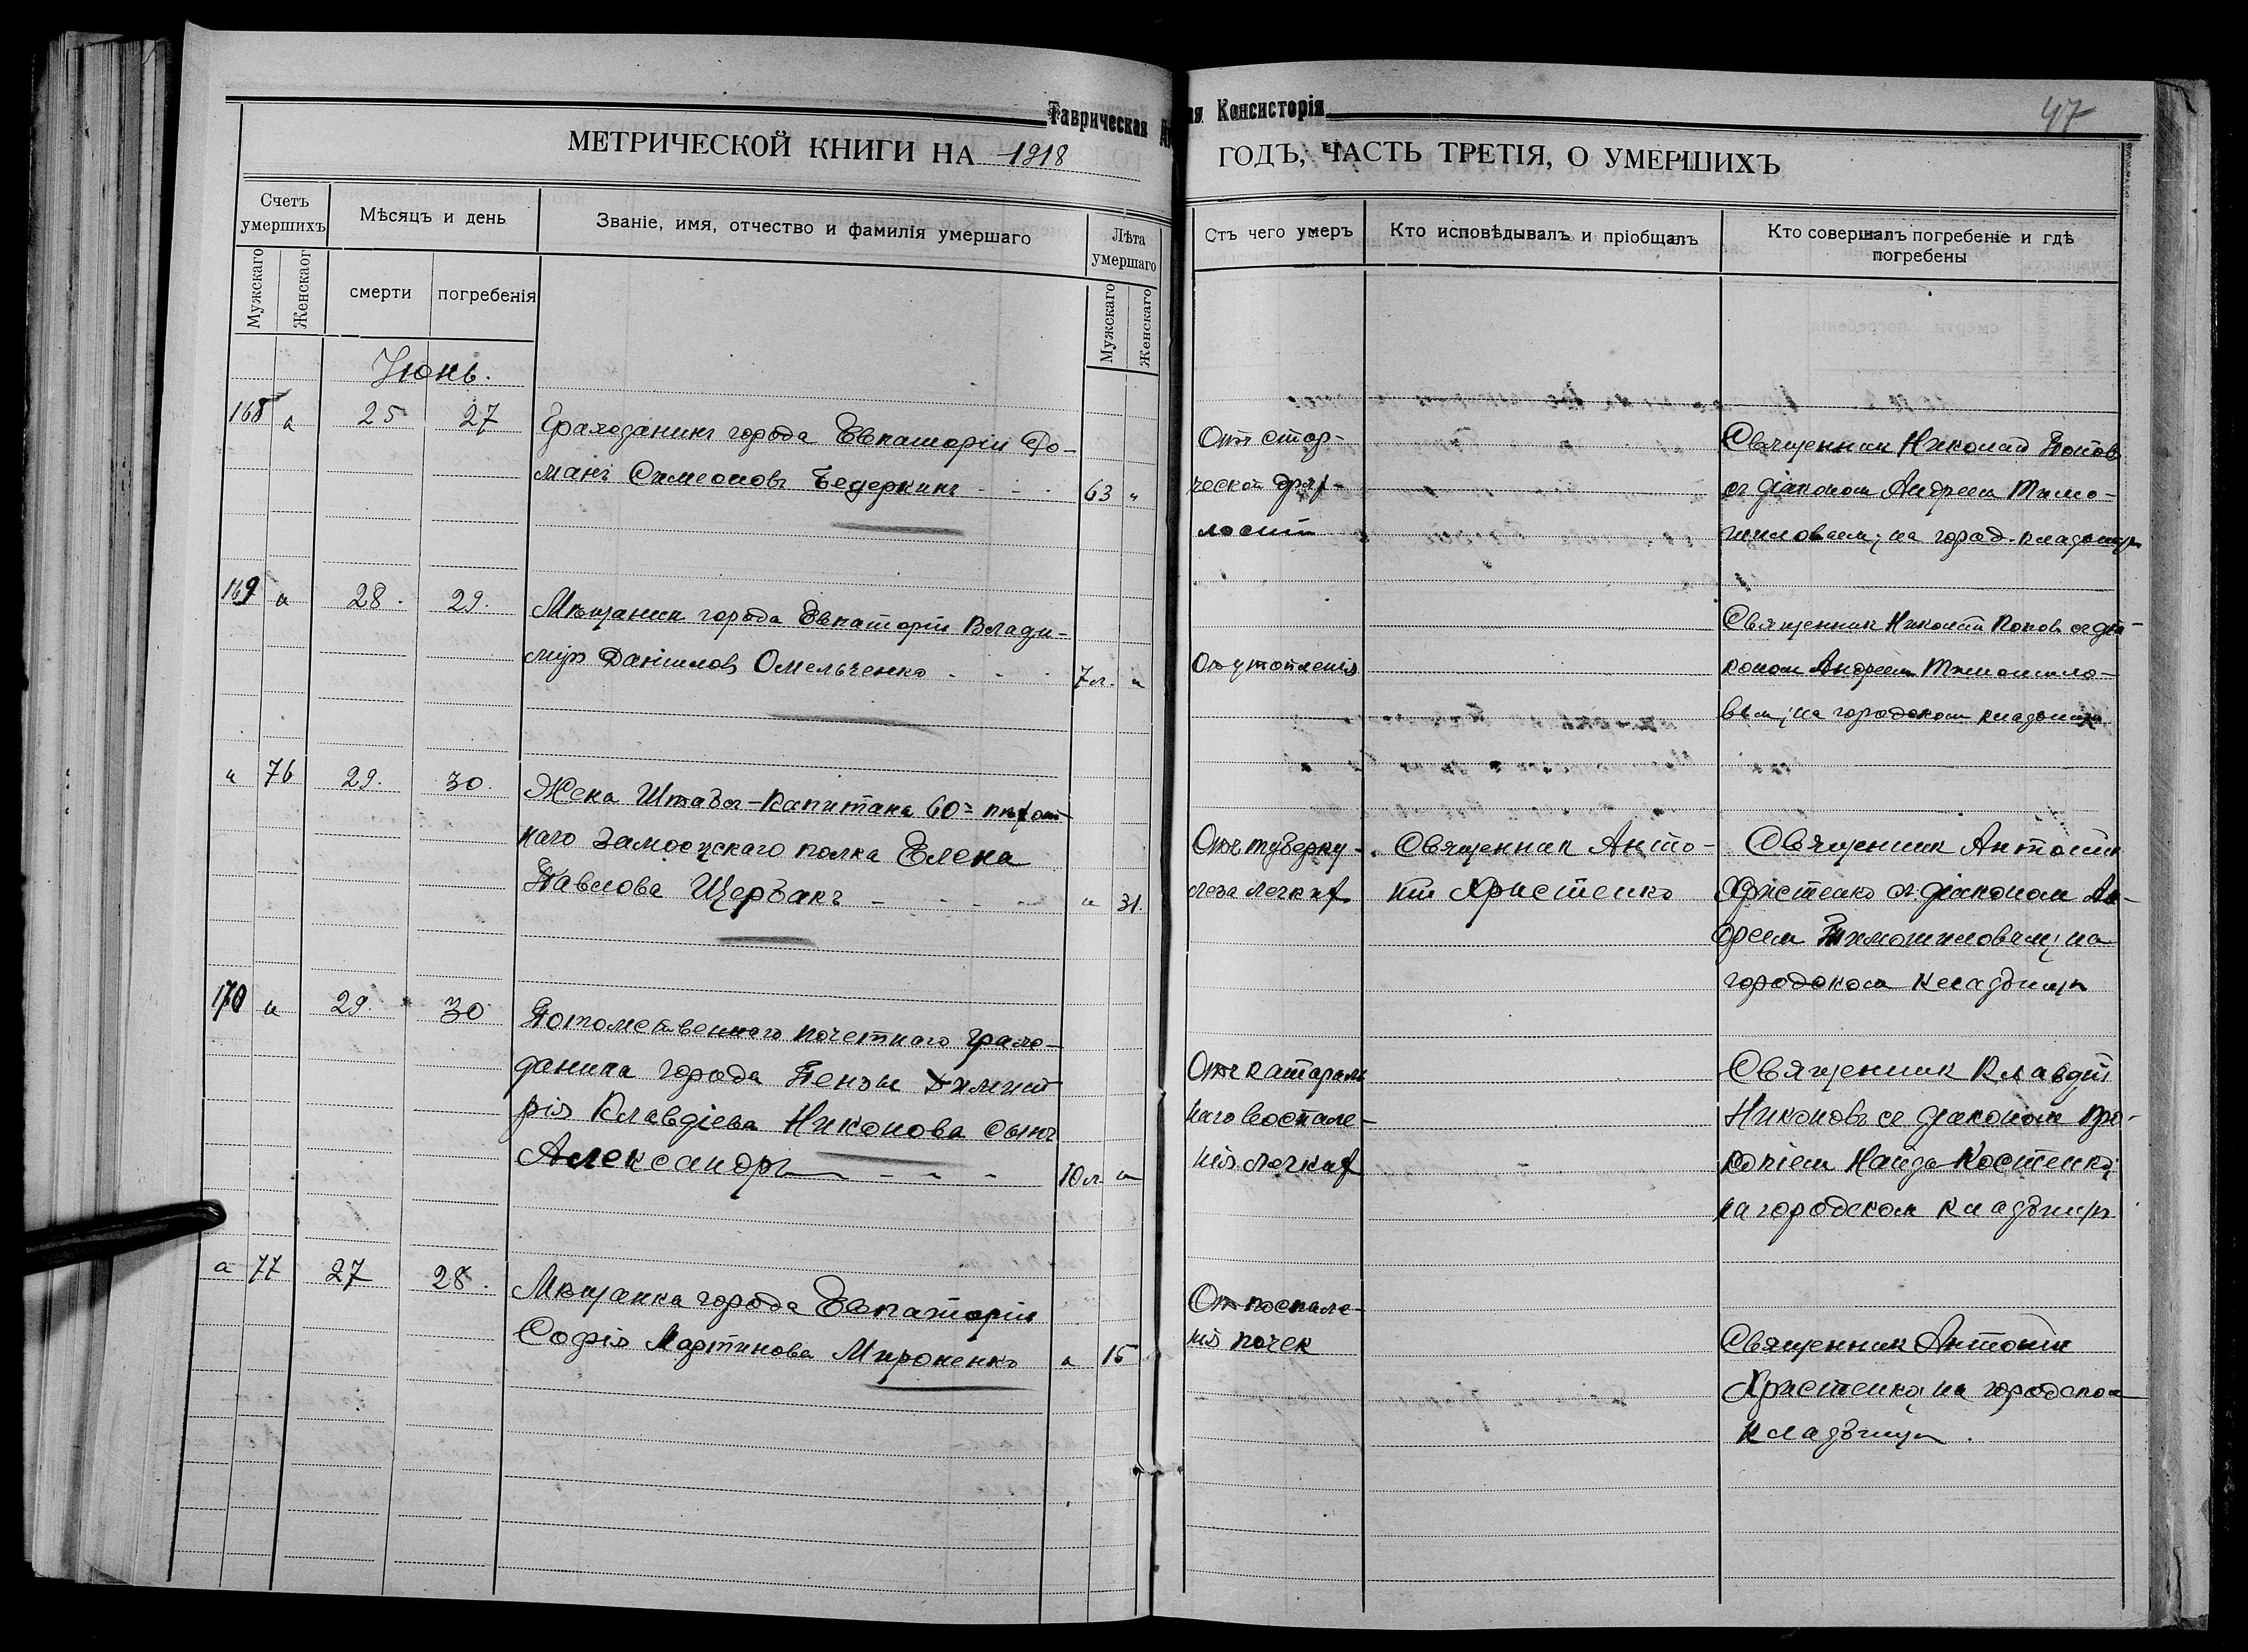 Таврическая
ая Консисторія
47
МЕТРИЧЕСКОЙ КНИГИ НА 1918
ГОДЪ, ЧАСТЬ ТРЕТІЯ, О УМЕРШИХЪ
Счетъ умершихъ
Мѣсяцъ и день
Званіе, имя, отчество и фамилія умершаго
Лѣта умершаго
Мужскаго
Женскаог
смерти
погребенія
Мужскаго
Женскаго
Отъ чего умеръ
Кто исповѣдывалъ и пріобщалъ
Кто совершалъ погребеніе и гдѣ
погребены
Іюнь.
168 " 25 27
Гражданинъ города Евпаторіи Ро-
манъ Симеоновъ Бедеркинъ 63 "
От стар-
ческой дрях-
лости
Священник Николай Попов
съ діаконом Андреем Тимо-
шиловым; на город. кладбищѣ
169 " 28. 29.
Мѣщанин города Евпаторіи Влади-
мір Даніилов Омельченко 7 л. "
От утопленія
Священник Николай Попов съ діа-
коном Андреем Тимошило-
вым; на городском кладбищѣ
" 76 29. 30.
Жена Штабсъ-Капитана 60= пѣхот-
наго Замосцскаго полка Елена
Павлова Щербакъ " 31.
Отъ туберку-
леза легких
Священник Анто-
ній Христенко
Священник Антоній
Христенко съ діаконом Ан-
дреем Тимошиловым; на
городском кладбищѣ
170 " 29. 30
Потомственнаго почетнаго граж-
данина города Пензы Димит-
рія Клавдіева Никонова сынъ
Александръ 10 л. "
Отъ катараль
наго воспале-
нія легких
Священник Клавдій
Никоновъ съ діаконом Про-
копіем Найда-Костенко;
на городском кладбищѣ
" 77 27 28.
Мѣщанка города Евпаторіи
София Мартинова Мироненко " 15
От воспале-
нія почек
Священник Антоній
Христенко; на городском
кладбищѣ.